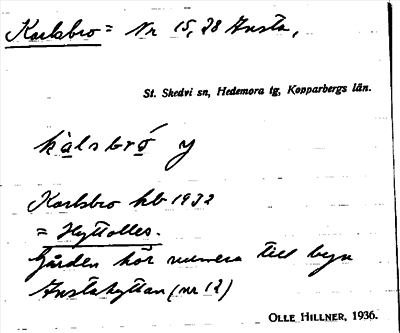 Karlsbro = Nr 15, 28 Insta,
St. Skedvi sn, Hedemora tg, Kopparbergs län.
kàlsbró y
Karlsbro kb 1932
= Hyttolles.
Gården hör numera till byn
Instahyttan (nr 12)
OLLE HILLNER, 1936.